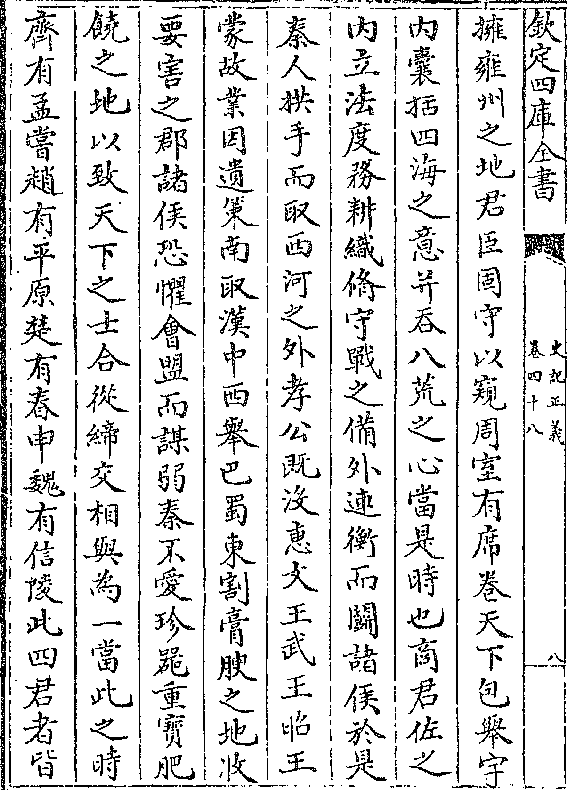 欽定四庫全書
史記正義
卷四十八
八
擁雍州之地君臣固守以窺周室有席卷天下包舉宇
内囊括四海之意并吞八荒之心當是時也商君佐之
内立法度務耕織脩守戰之備外連衡而鬬諸侯於是
秦人拱手而取西河之外孝公既沒惠文王武王昭王
蒙故業因遺策南取漢中西舉巴蜀東割膏腴之地收
要害之郡諸侯恐懼會盟而謀弱秦不愛珍器重寶肥
饒之地以致天下之士合從締交相與為一當此之時
齊有孟嘗趙有平原楚有春申魏有信陵此四君者皆